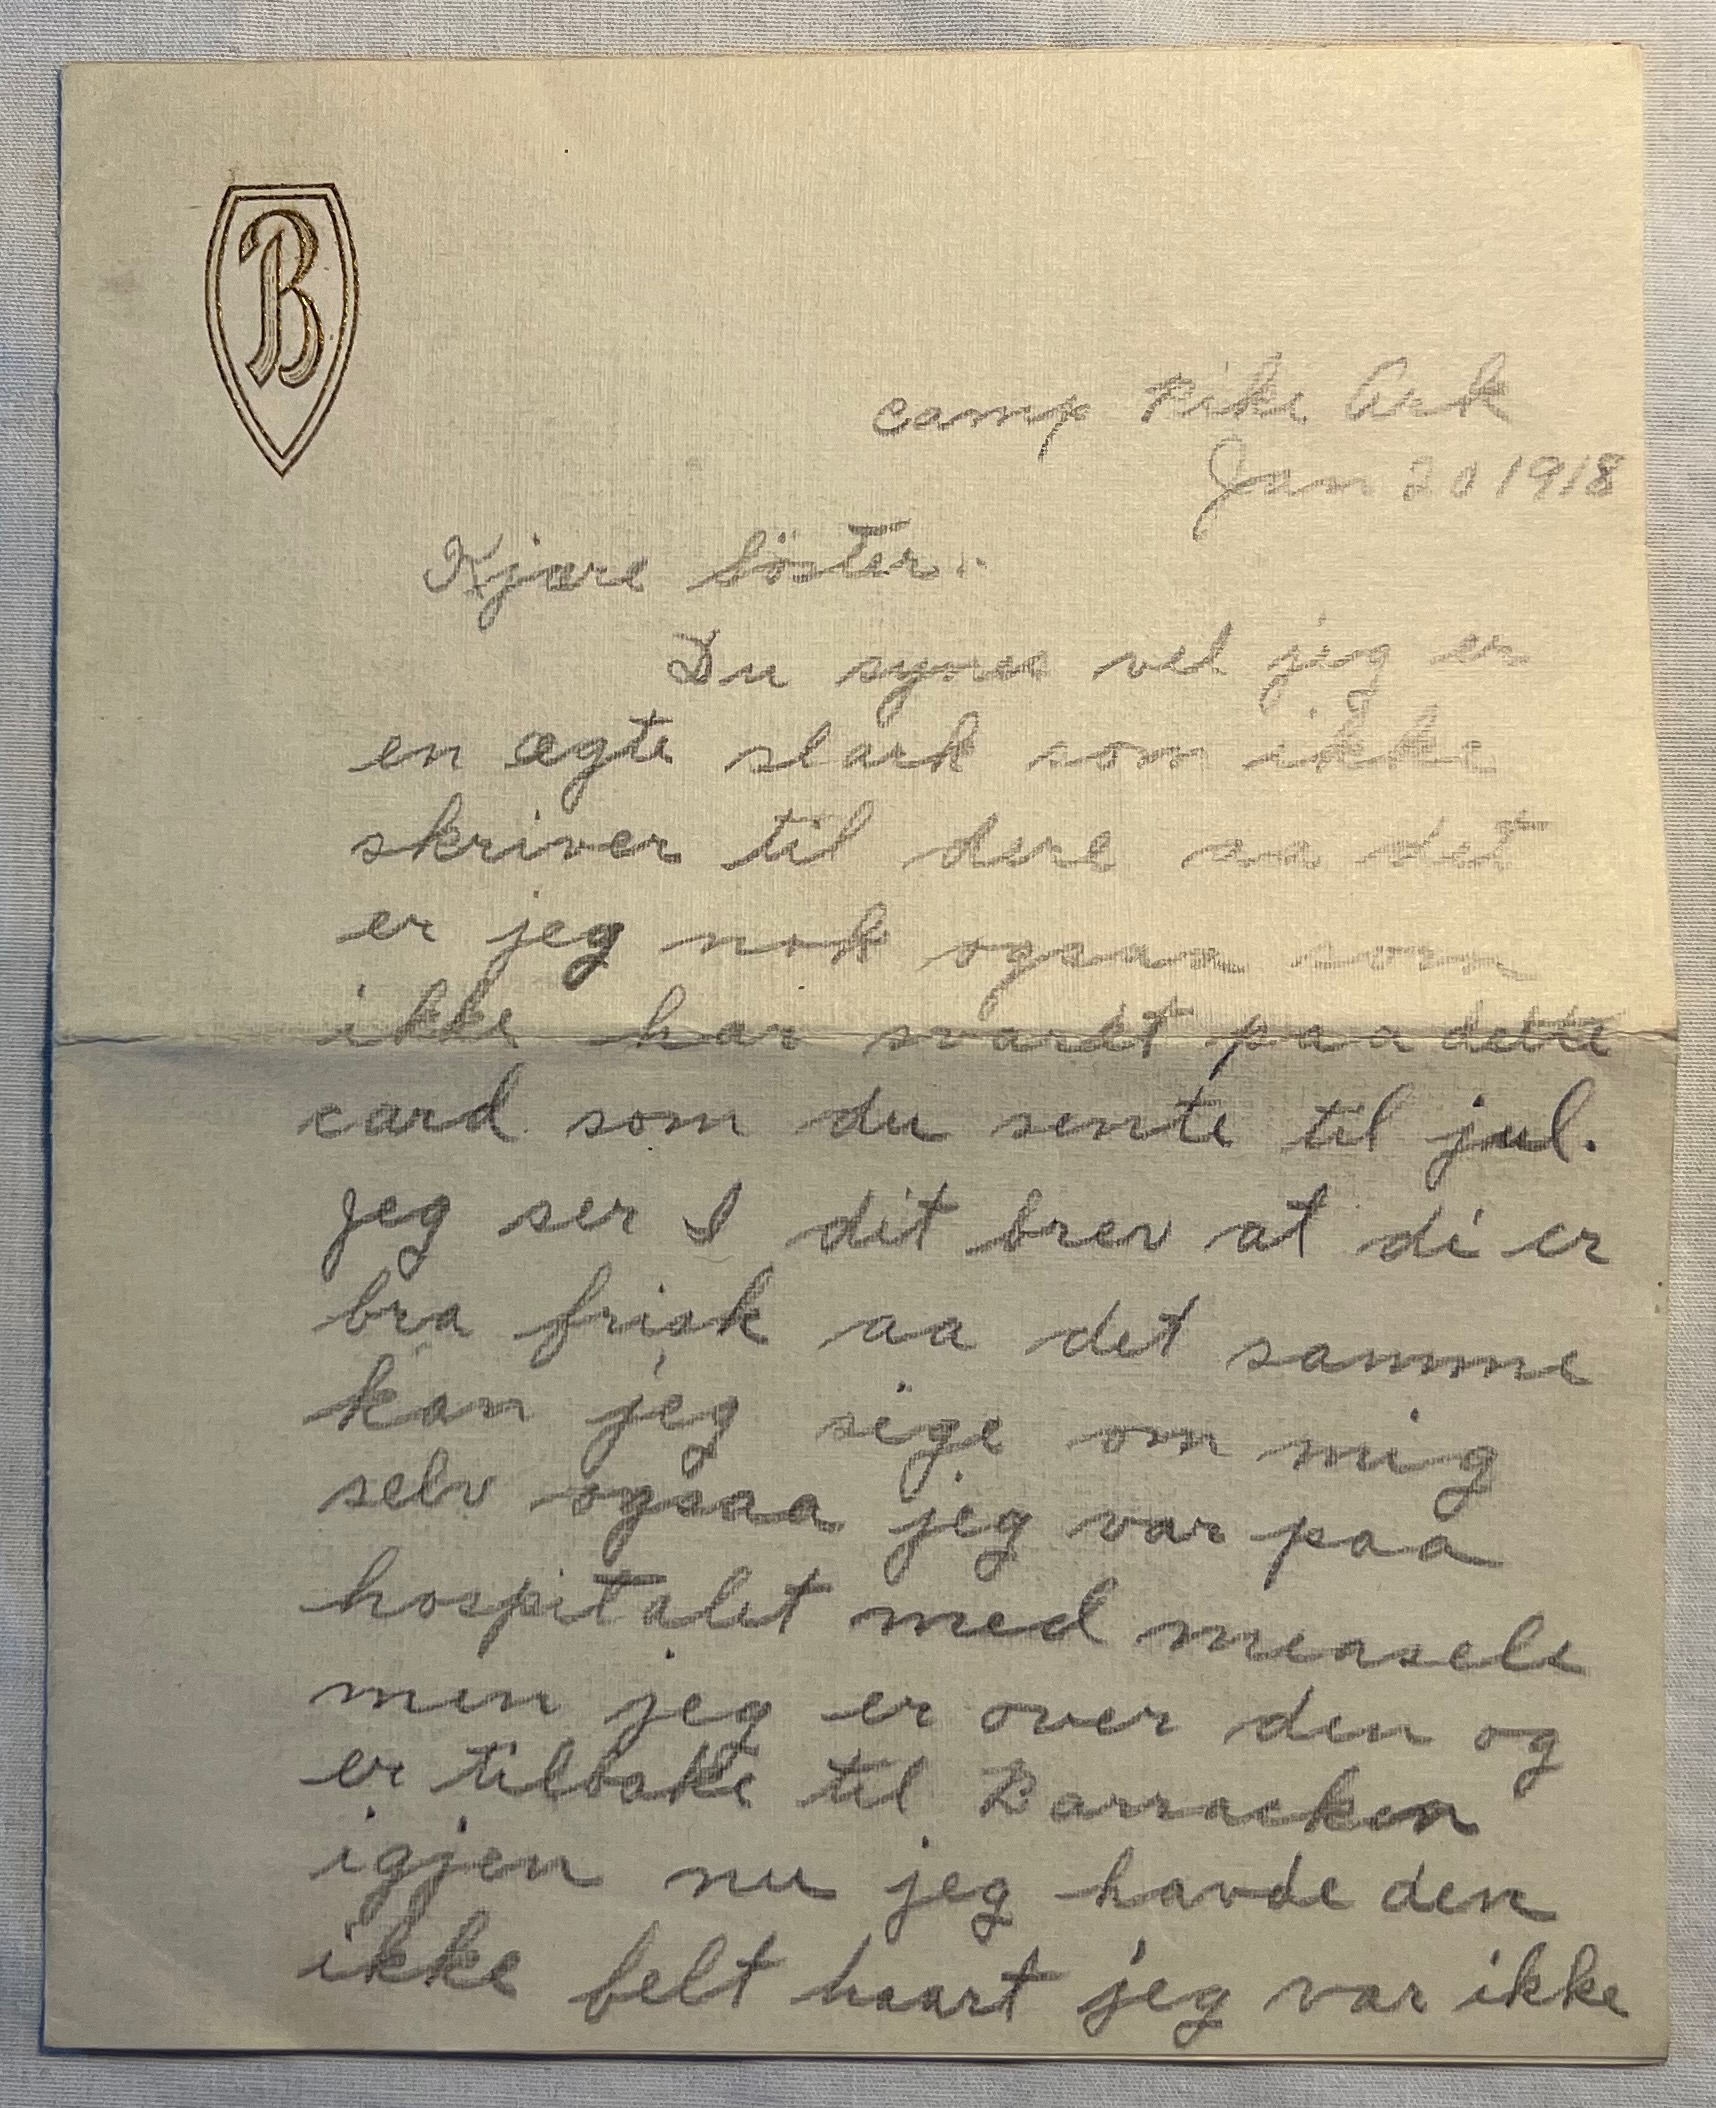 B
camp Pike Ark
Jan 20 1918
Kjære Söster.
Du synes vel jeg er
en ægte slark som ikke
skriver til dere aa det
er jeg nok ogsaa som
ikke har svardt paa dette
card som du sente til jul.
Jeg ser I dit brev at di er
bra frisk aa det samme
kan jeg sige om mig
selv ogsaa jeg var paa
hospitalet med measele
men jeg er over den og
er tilbake til Barracken
igjen nu jeg havde den
ikke felt haart jeg var ikke